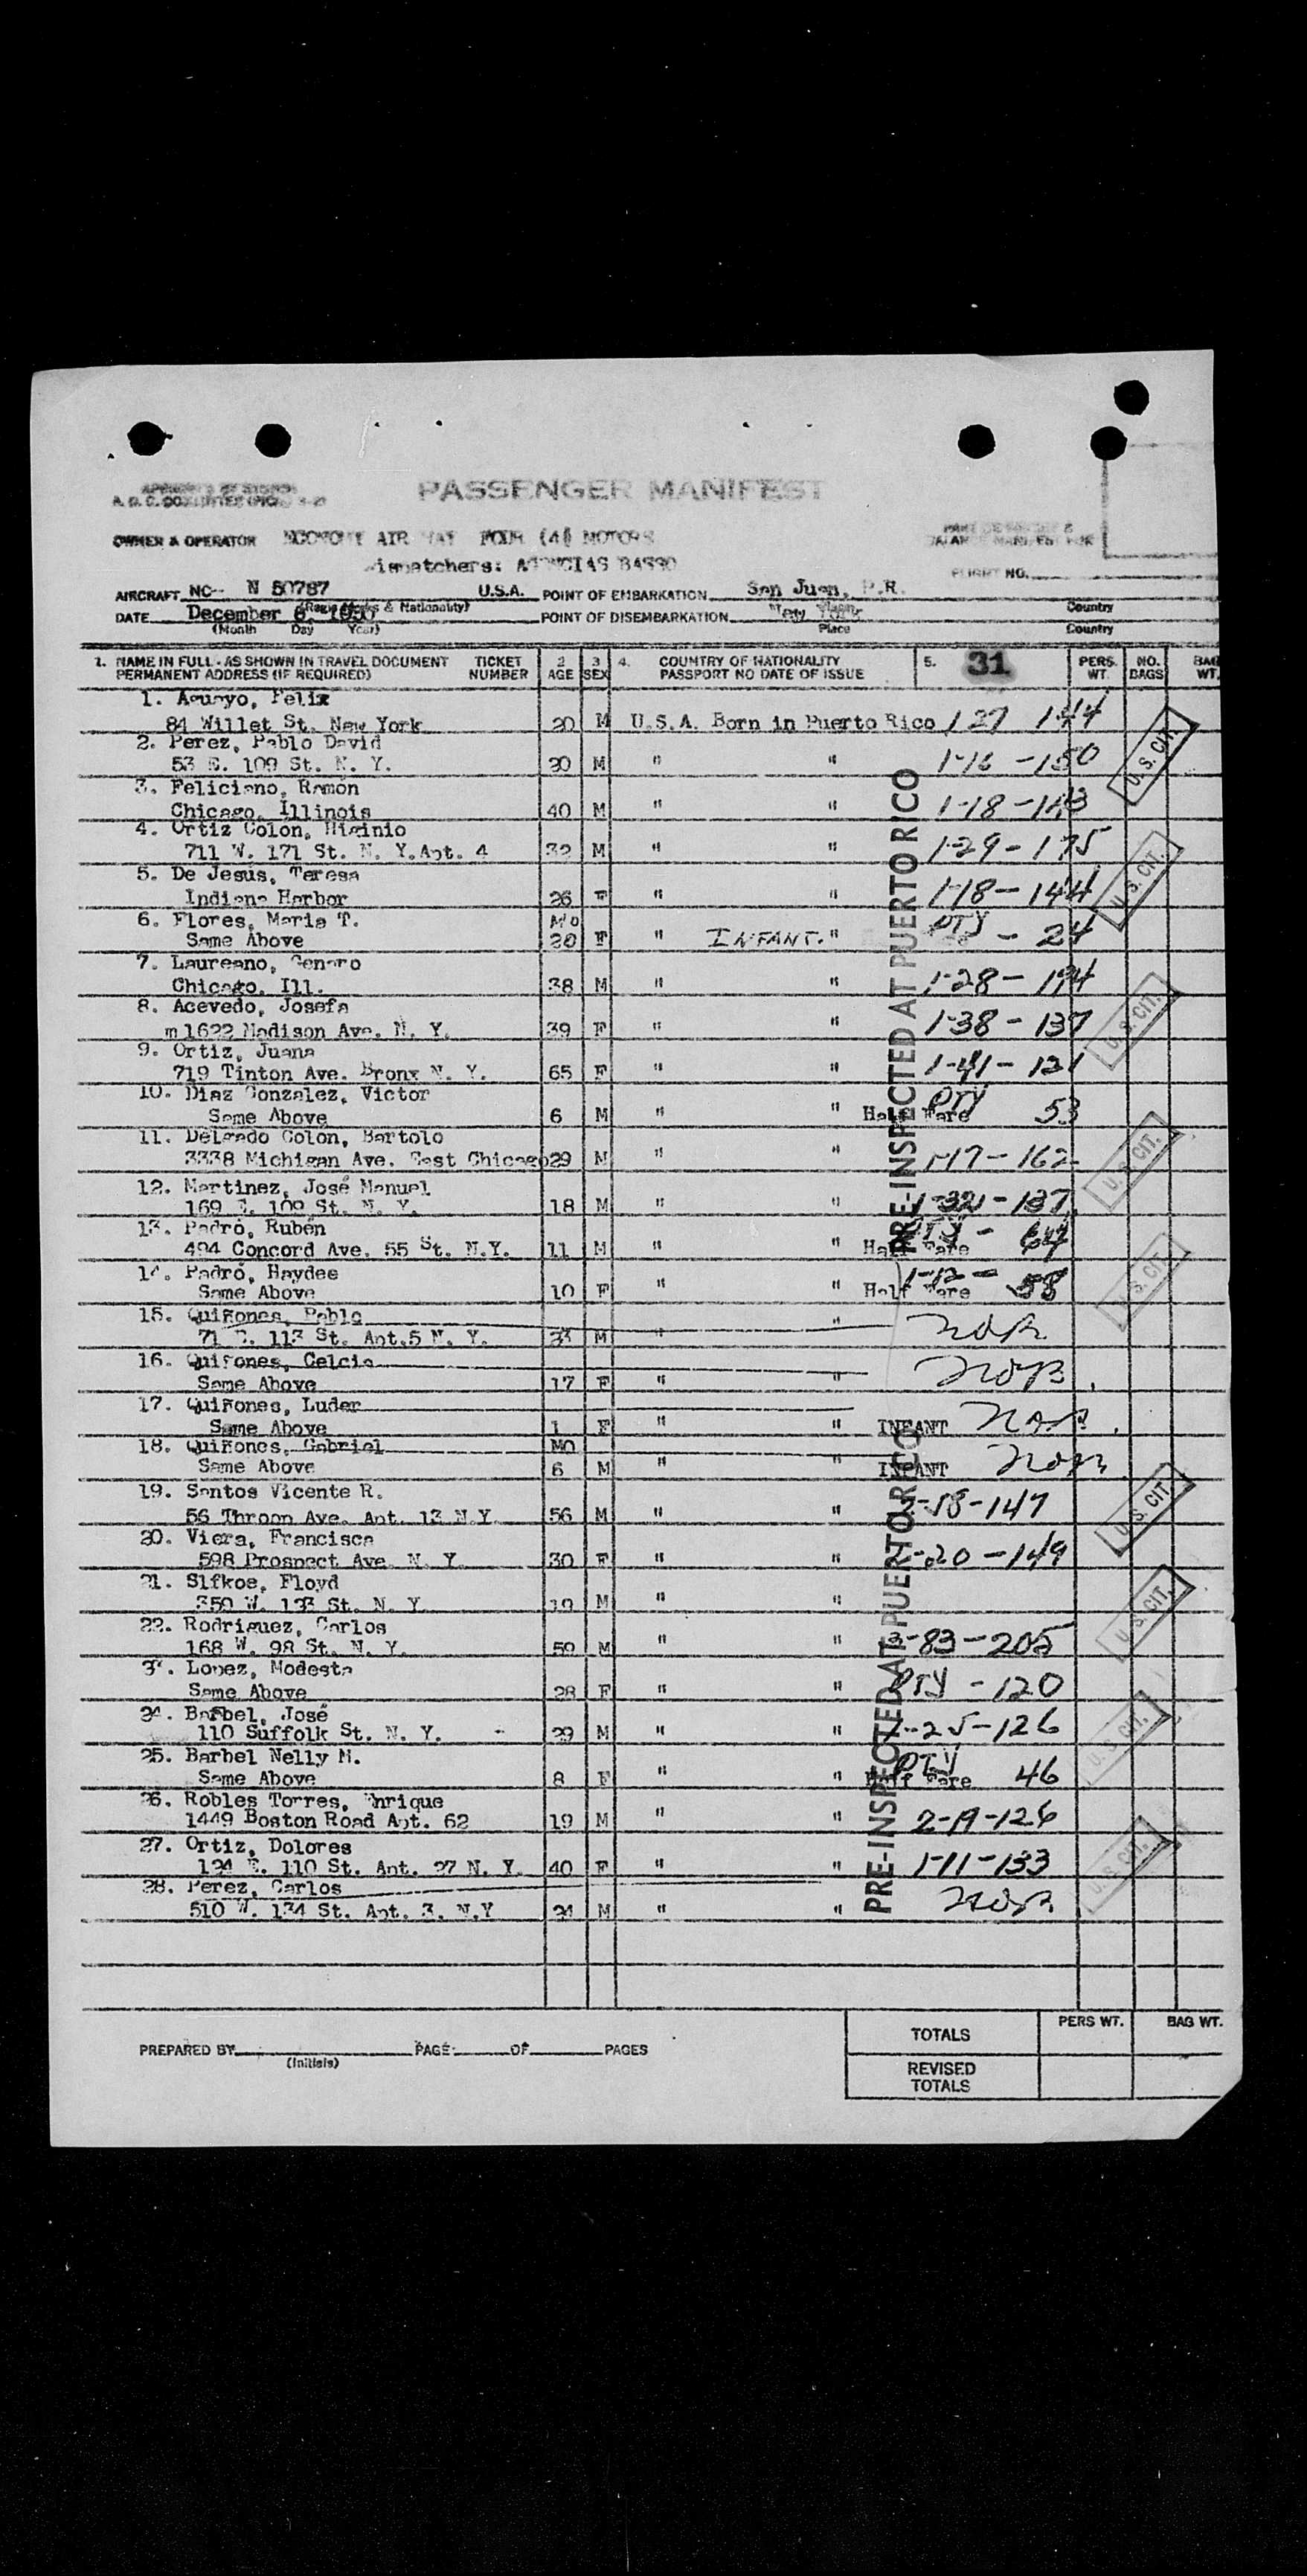 PASSENGER MANIFEST
OWNER & OPERATOR ECONOMY AIR WAY FOUR (4) MOTORS
Dispatchers: AGENCIAS BASSO
FLIGHT NO.
AIRCRAFT NC-- N 50787 U.S.A. POINT OF EMBARKATION San Juan, P.R.
(Regis Marks & Nationality) Country
DATE December 6, 1950 POINT OF DISEMBARKATION New York
(Month Day Year) Place Country
1. NAME IN FULL - AS SHOWN IN TRAVEL DOCUMENT TICKET 2 3 4. COUNTRY OF NATIONALITY 5. 31 PERS. NO. BAG
PERMANENT ADDRESS (IF REQUIRED) NUMBER AGE SEX PASSPORT NO DATE OF ISSUE WT. BAGS WT.
1. Aguayo, Felix
84 Willet St. New York 20 M U.S.A. Born in Puerto Rico 1 27 144
2. Perez, Pablo David
53 E. 109 St. N. Y. 20 M " " 1-16 - 150
3. Feliciano, Ramón
Chicago, Illinois 40 M " " 1-18 - 143
4. Ortiz Colon, Higinio
711 W. 171 St. N. Y. Apt. 4 32 M " " 1-29 - 175
5. De Jesús, Teresa
Indiana Harbor 26 F " " 1-18 - 144
6. Flores, Maria T. Mo
Same Above 20 F " INFANT. " PTY - 24
7. Laureano, Genaro
Chicago, Ill. 38 M " " 1-28 - 194
8. Acevedo, Josefa
m 1622 Madison Ave. N. Y. 39 F " " 1-38 - 137
9. Ortiz, Juana
719 Tinton Ave. Bronx N. Y. 65 F " " 1-41 - 121
10. Diaz Gonzalez, Victor
Same Above 6 M " " Half Fare PTY 53
11. Delgado Colón, Bartolo
3338 Michigan Ave. East Chicago 29 M " " 1-17 - 162
12. Martinez, José Manuel
169 E. 109 St. N. Y. 18 M " " 1-32 - 137
13. Padró, Rubén
494 Concord Ave. 55 St. N.Y. 11 M " " Half Fare PTY - 64
14. Padró, Haydee
Same Above 10 F " " Half Fare 1-12 - 58
15. Quiñones, Pablo
71 E. 113 St. Apt.5 N. Y. 33 M " " NOB
16. Quiñones, Celcia
Same Above 17 F " " NOB
17. Quiñones, Luder
Same Above 1 F " " INFANT NOB
18. Quiñones, Gabriel Mo
Same Above 6 M " " INFANT NOB
19. Santos Vicente R.
56 Throop Ave. Apt. 13 N.Y. 56 M " " -58-147
20. Viera, Francisca
598 Prospect Ave. N. Y. 30 F " " -20-149
21. Slfkoe, Floyd
350 W. 133 St. N. Y. 19 M " "
22. Rodriguez, Carlos
168 W. 98 St. N. Y. 50 M " " 3-83-205
Lopez, Modesta
Same Above 28 F " " PTY - 120
24. Barbel, José
110 Suffolk St. N. Y. - 29 M " " -25-126
25. Barbel Nelly M.
Same Above 8 F " " Half Fare PTY 46
26. Robles Torres, Enrique
1449 Boston Road Apt. 62 19 M " " 2-19-126
27. Ortiz, Dolores
124 E. 110 St. Apt. 27 N. Y. 40 F " " 1-11-133
28. Perez, Carlos
510 W. 134 St. Apt. 3. N.Y 24 M " " NOB
PRE-INSPECTED AT PUERTO RICO
PRE-INSPECTED AT PUERTO RICO
U. S. CIT.
U. S. CIT.
U. S. CIT.
U. S. CIT.
U. S. CIT.
U. S. CIT.
U. S. CIT.
U. S. CIT.
U. S. CIT.
TOTALS PERS WT. BAG WT.
PREPARED BY PAGE OF PAGES
(Initials)
REVISED
TOTALS